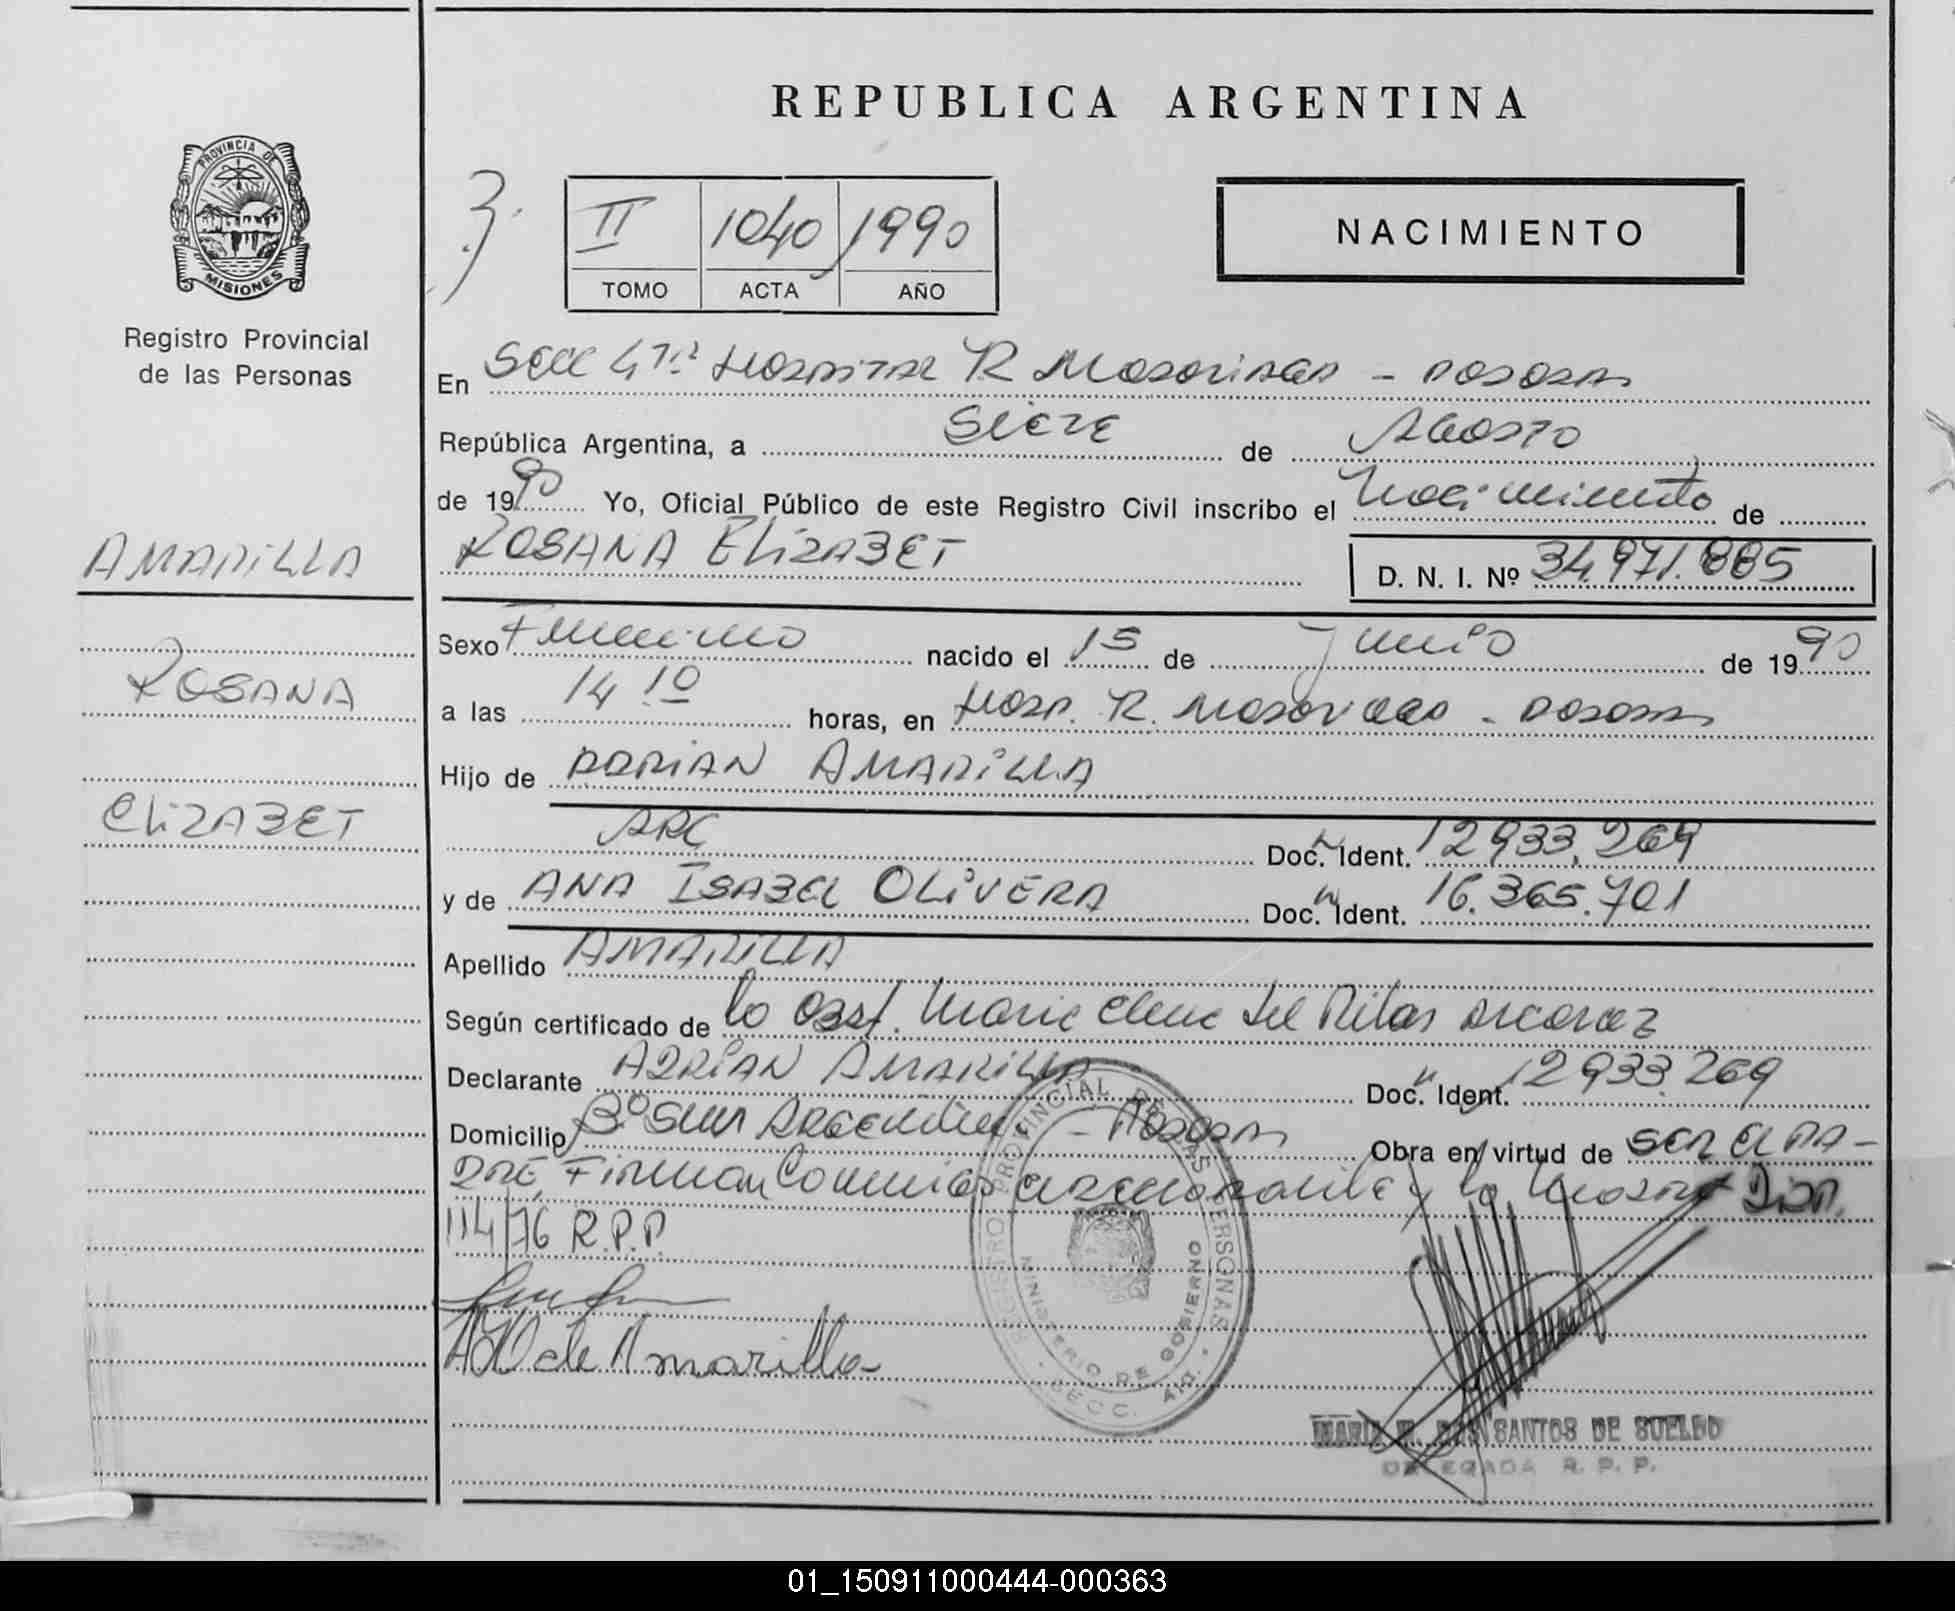 REPUBLICA ARGENTINA
PROVINCIA DE
MISIONES
Registro Provincial
de las Personas
II 1040 1990
TOMO ACTA AÑO
NACIMIENTO
En Secc 4ta Hospital R Madariaga - Posadas
República Argentina, a Siete de Agosto
de 1990 Yo, Oficial Público de este Registro Civil inscribo el Nacimiento de
ROSANA ELIZABET D. N. I. Nº 34.971.885
AMARILLA
ROSANA
ELIZABET
Sexo Femenino nacido el 15 de Junio de 1990
a las 14 10 horas, en Hosp. R. Madariaga - Posadas
Hijo de ADRIAN AMARILLA
ARG Doc. Ident. 12933.269
y de ANA ISABEL OLIVERA Doc. Ident. 16.365.701
Apellido AMARILLA
Según certificado de la Obst. Maria Elena del Pilar
Declarante ADRIAN AMARILLA Doc. Ident. 12933.269
Domicilio Bº San - Posadas Obra en virtud de SER EL PA-
DRE, Firman Conmigo y la
114/76 R.P.P.
de Amarilla
REGISTRO PROVINCIAL DE LAS PERSONAS
MINISTERIO DE GOBIERNO
SECC. 4ta.
MARIA DOS SANTOS DE SUELDO
DELEGADA R. P. P.
01_150911000444-000363